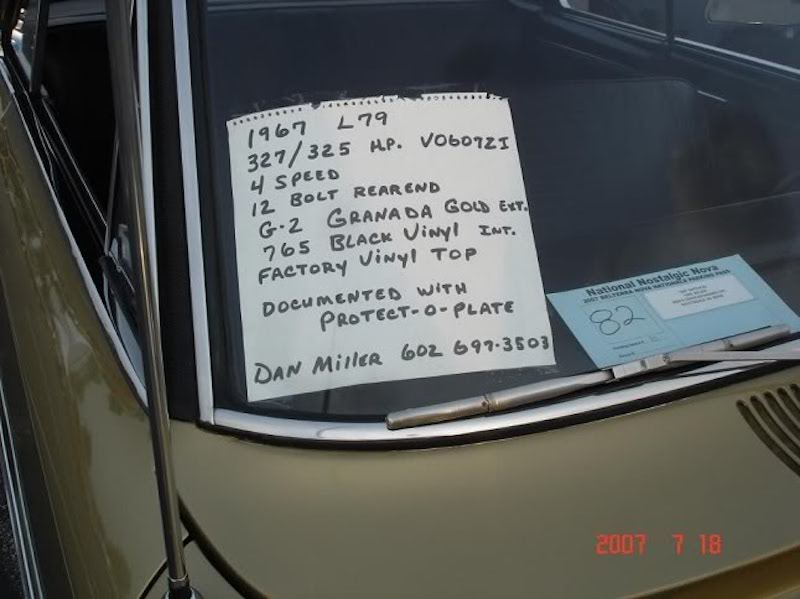 1967 L79
327/325 H.P. V0607ZI
4 SPEED
12 BOLT REAREND
G-2 GRANADA GOLD EXT.
765 BLACK VINYL INT.
FACTORY VINYL TOP
DOCUMENTED WITH
PROTECT-O-PLATE
DAN MILLER 602 697-3503
National Nostalgic Nova
2007 BELTERRA-NOVA NATIONALS PARKING PASS
82
2007 7 18